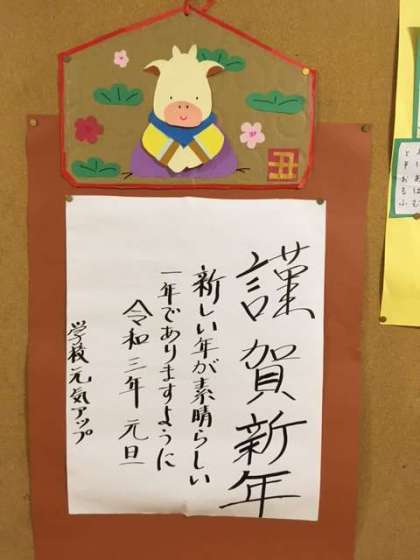 丑
謹賀新年
新しい年が素晴らしい
一年でありますように
令和三年元旦
学校元気アップ